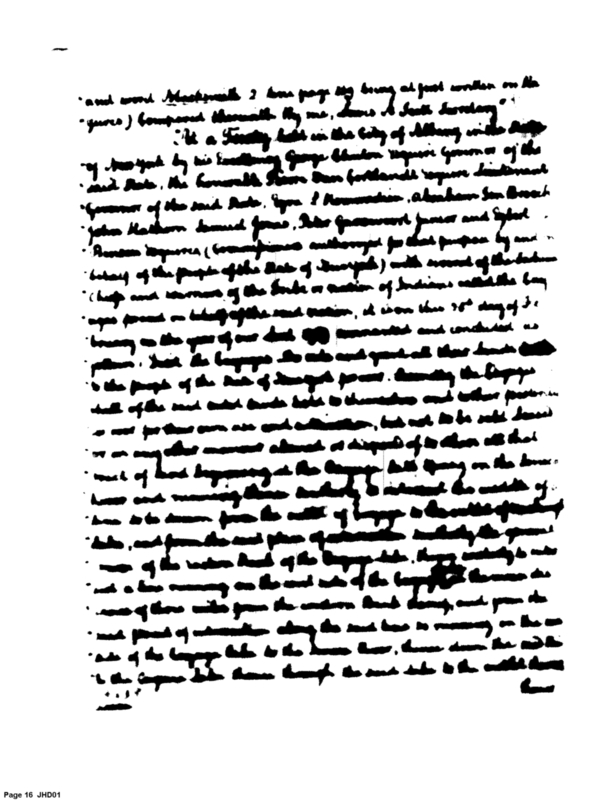 and word Mackworth 2 line page 119 being at first written on the
quires) Compared therewith By me, Lewis A Scott Secretary"
"At a Treaty held in the City of Albany in the State
of New York by his Excellency George Clinton Esquire Governor of the
said State, the honorable Pierre Van Cortlandt Esquire Lieutenant
Governor of the said State, Ezra L'Hommedieu, Abraham Ten Broeck
John Hathorn Samuel Jones, Peter Gansevoort junior and Egbert
Benson Esquires, (Commissioners authorized for that purpose by and
behalf of the people of the State of New York) with several of the
Chiefs and warriors of the Tribe or nation of Indians called the Cay
ugas present on behalf of the said nation, it is on this 25th day of Fe
bruary in the year of our Lord covenanted and concluded as
follows. First the Cayugas do cede and grant all their Lands
to the people of the State of New York forever. Secondly the Cayugas
shall of the said ceded Lands hold to themselves and to their posterity
for ever for their own use and cultivation, but not to be sold leased
or in any other manner aliened or disposed of to others all that
tract of land beginning at the Cayuga Salt Spring on the Seneca
River and running thence southerly to intersect the middle of
line to be drawn from the outlet of Cayuga to the outlet of
lake, and from the said place of intersection southerly the general
course of the eastern Bank of the Cayuga lake, thence westerly to inter
sect a line running on the east side of the Cayuga lake the mean dis
tance of three miles from the eastern Bank thereof, and from the
said point of intersection along the said line so running on the east
side of the Cayuga lake to the Seneca River, thence down the
to the Cayuga lake thence through the said lake to the outlet thereof
thence
Page 16 JHD01